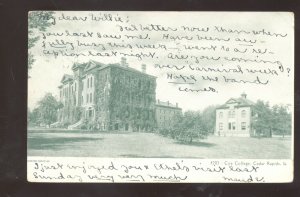 My dear Willie:
Felt better now than when
you last saw me. Have been aw-
fully busy this week – went to a re-
ception last night. Are you coming
over carnival week?
Hope the band
comes.
Coe College, Cedar Rapids, Ia.
I just enjoyed you & Ethel's visit last
Sunday very very much